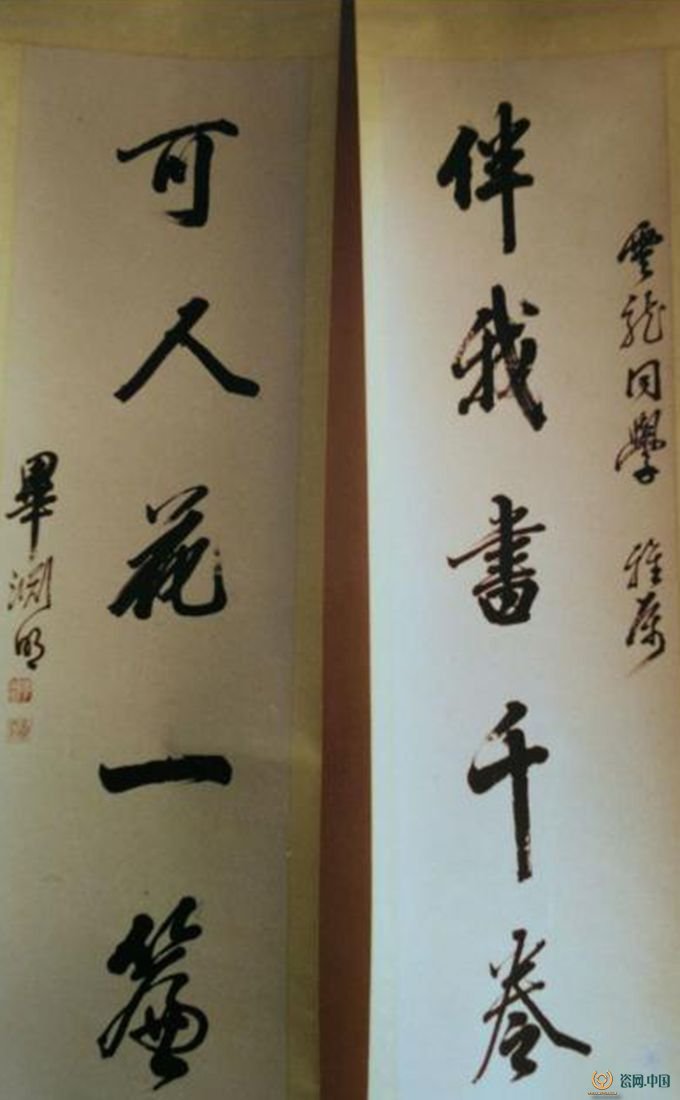 雲龍同學 雅属
伴我書千卷
可人花一簾
畢淵明
瓷网.中国